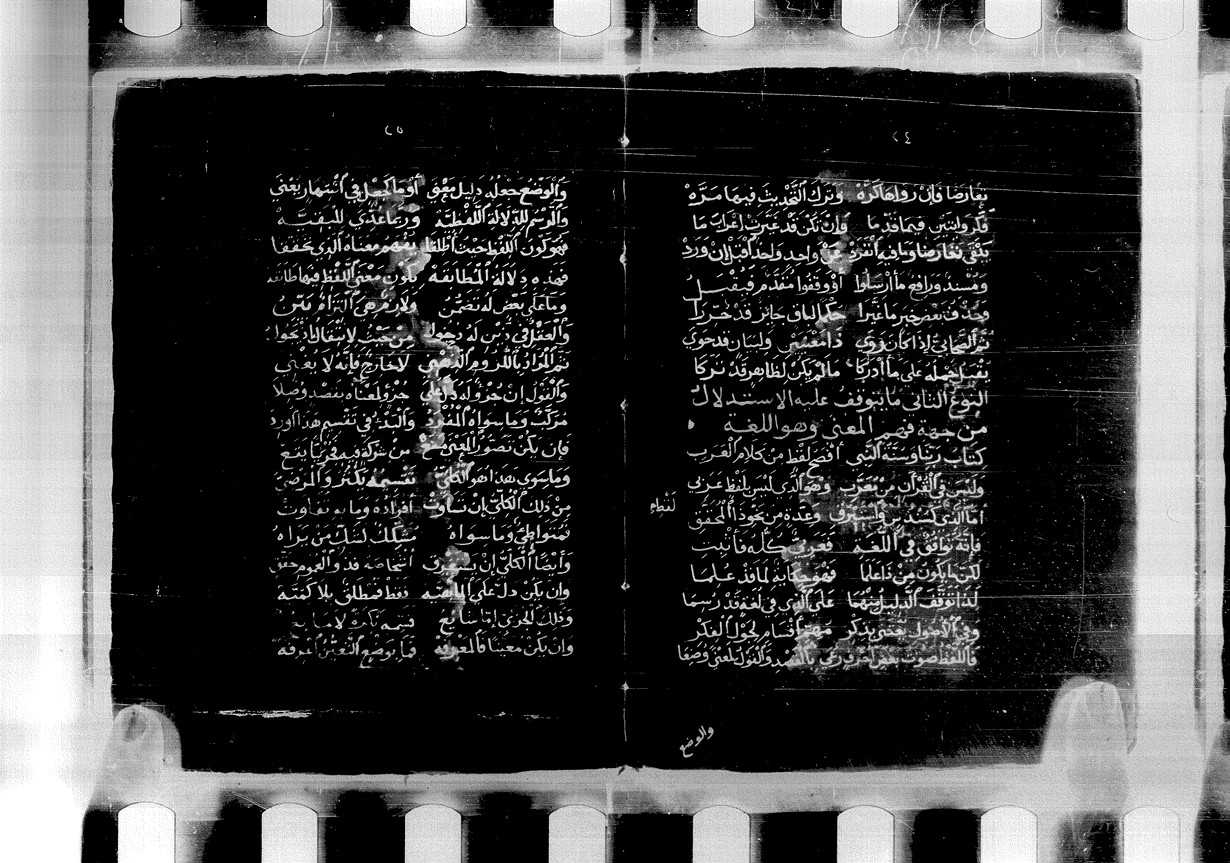 ٢٤
تعارضا فإن رواها كره وترك التحديث فيها مره
فكروايتين فيما قدما وإن تكن قد غيرت إعراب ما
بقي تعارضا وما فيه انفرد عن واحد واحد اقبل إن ورد
ومسند ورافع ما أرسلوا أو وقفوا مقدم فيقبل
وحذف بعض خبر ما غيرا حكما لباق جائز قد حررا
ثم الصحابي إذا كان روى ذا معنيين ولبيان قد حوى
يقبل حمله على ما أدركا ما لم يكن لظاهر قد تركا
النوع الثاني ما يتوقف عليه الاستدلال
من جهة فهم المعنى وهو اللغة
كتاب ربنا وسنة النبي أفصح لفظ من كلام العرب
وليس في القرآن من معرب وهو الذي ليس بلفظ عربي
أما الذي كسندس وإستبرق وعده من نحو ذا المحقق
لفظه
فإنه توافق في اللغة فعربي كله فأثبت
لكن ما يكون من ذا علما فهو حكاية لما قد علما
لذا توقف الدليل منهما على الذي في لغة قد رسما
وفي الأصول بعض يذكر أقسام الفكر
فاللفظ صوت بعض أحرف والقول لمعنى وضعا
والوضع
٢٥
والوضع جعله دليل معنى أو ما جعل في اشتهار يعني
والوسم للدلالة اللفظية وربما عدي للبقية
فهو كون اللفظ حيث أطلقا يفهم معناه الذي تحققا
فهذه دلالة المطابقة بكون معنى اللفظ فيها طابقه
وما على بعض له تضمن ولازم هي التزام بين
والعقل في ذين له دخول من حيث لانتقال
ثم المراد باللزوم الذهني لا خارج فإنه لا يعني
والقول إن جزؤ له دل على جزؤ لمعناه بقصد وصلا
مركب وما سواه المفرد والبدء في تقسيم هذا أورد
فإن يكن تصور المعنى منع من شركة فيه فجزئيا يقع
وما سوى هذا هو الكلي تقسيمه
من ذلك الكلي إن تساوت أفراده وما به تفاوت
فمتواطئ وما سواه مشكك لشك من يراه
وأيضا الكلي إن يستغرق أشخاصه فذو العموم حقق
وإن يكن دل على الماهيه فقط فمطلق بلا كميه
وذلك الجزئي إما شائع
وإن يكن معينا فالمعرفه فما بوضع التعين اعرفه